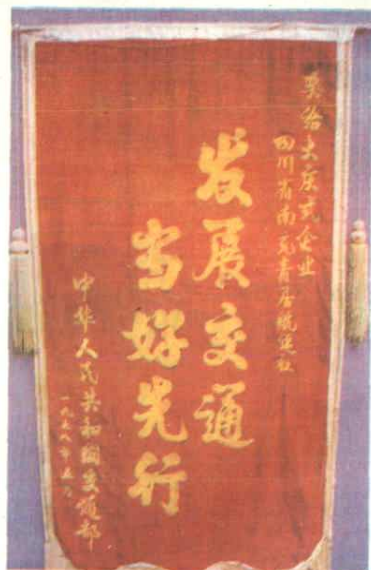 奖给大庆式企业
四川省南充青居航运社
发展交通
当好先行
中华人民共和国交通部
一九七八年五月